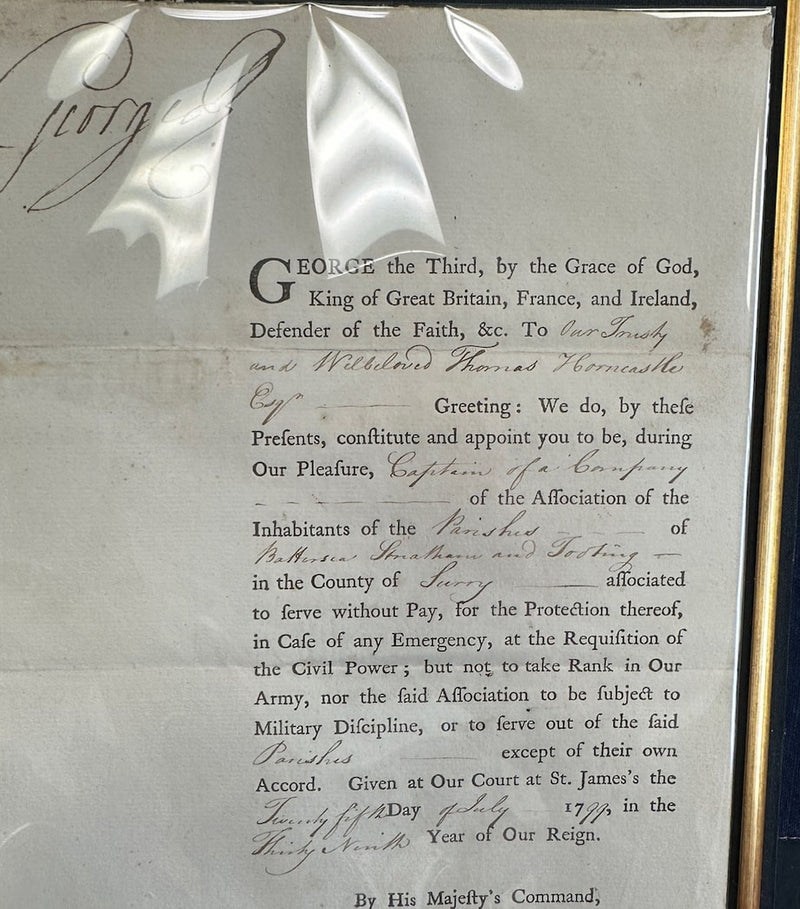 George R
GEORGE the Third, by the Grace of God,
King of Great Britain, France, and Ireland,
Defender of the Faith, &c. To Our Trusty
and Welbeloved Thomas Horncastle
Esqr Greeting: We do, by theſe
Preſents, conſtitute and appoint you to be, during
Our Pleaſure, Captain of a Company
of the Aſſociation of the
Inhabitants of the Parishes of
Battersea Streatham and Tooting
in the County of Surry aſſociated
to ſerve without Pay, for the Protection thereof,
in Caſe of any Emergency, at the Requiſition of
the Civil Power; but not to take Rank in Our
Army, nor the ſaid Aſſociation to be ſubject to
Military Diſcipline, or to ſerve out of the ſaid
Parishes except of their own
Accord. Given at Our Court at St. James's the
Twenty fifth Day of July 1799, in the
Thirty Ninth Year of Our Reign.
By His Majeſty's Command,